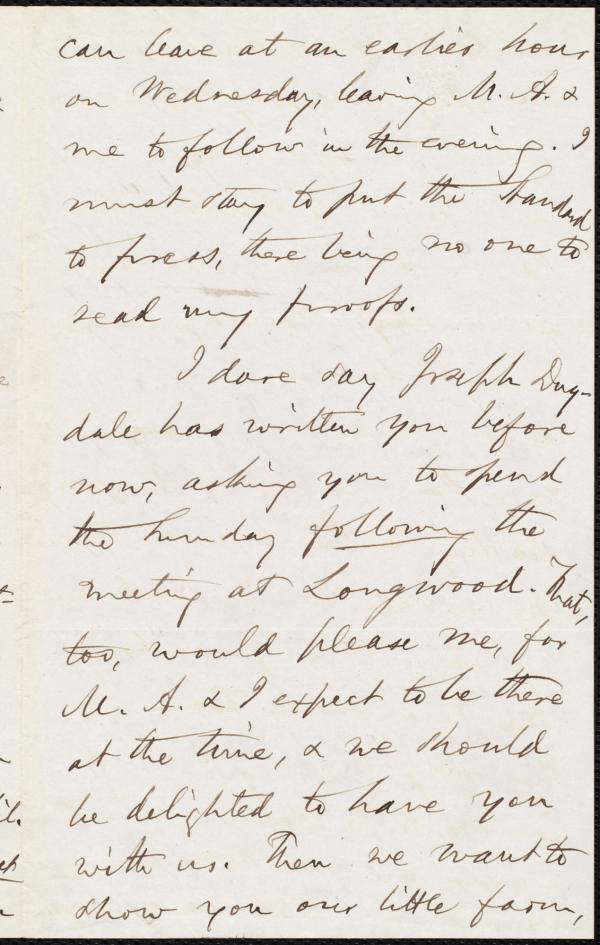 can leave at an earlier hour
on Wednesday, leaving M. A. &
me to follow in the evening. I
must stay to put the Standard
to press, there being no one to
read my proofs.
I dare say Joseph Dug-
dale has written you before
now, asking you to spend
the Sunday following the
meeting at Longwood. That,
too, would please me, for
M. A. & I expect to be there
at the time, & we should
be delighted to have you
with us. Then we want to
show you our little farm,